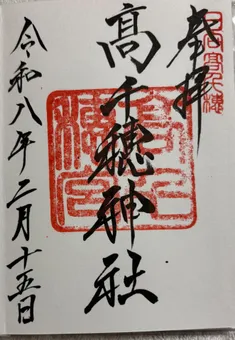 日向高千穂
奉拝
髙千穂神社
令和八年二月十五日